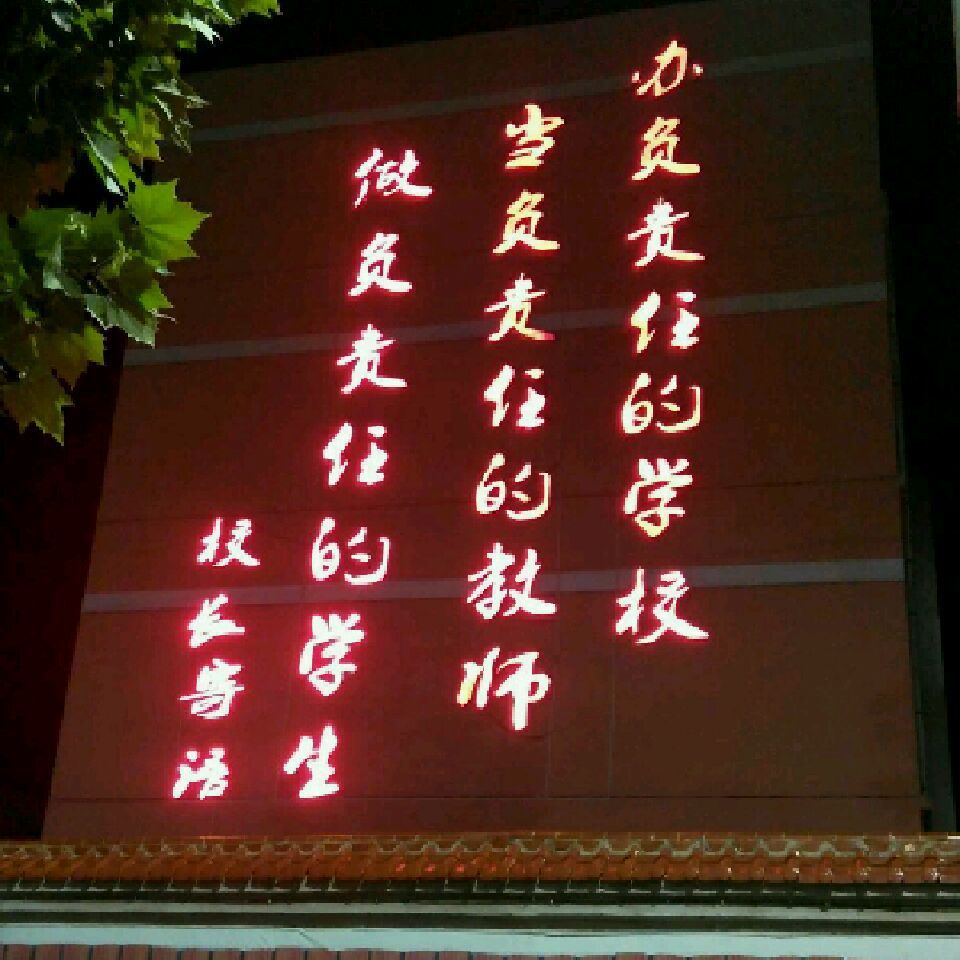 办负责任的学校
当负责任的教师
做负责任的学生
校长寄语